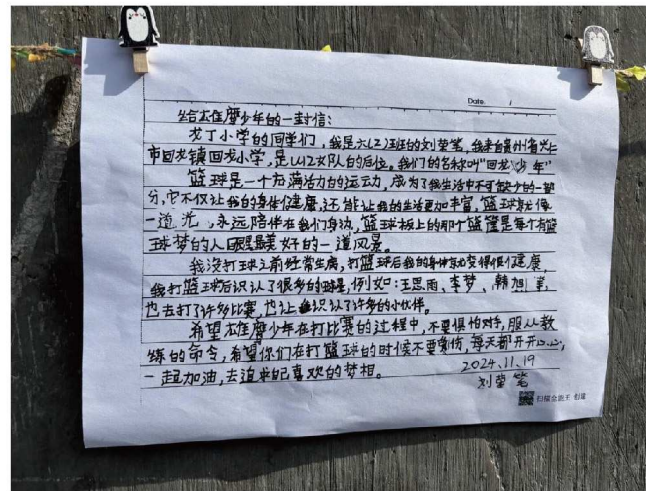 Date: /
给木佳磨少年的一封信:
龙丁小学的同学们,我是六(2)班的刘莹笔,我来自贵州省兴仁
市回龙镇回龙小学,是U12女队的后位。我们的名称叫“回龙少年”
篮球是一个充满活力的运动,成为了我生活中不可缺少的一部
分,它不仅让我的身体健康,还能让我的生活更加丰富,篮球尤像
一道光,永远陪伴在我们身边,篮球板上的那个篮筐是每个有篮
球梦的人眼里最美好的一道风景。
我没打球之前经常生病,打篮球后我的身体变得很健康,
我打篮球后识认了很多的球星,例如:王思雨、李梦、韩旭等,
也去打了许多比赛,也让识认了许多的小伙伴。
希望木佳磨少年在打比赛的过程中,不要惧怕对手,服从教
练的命令,希望你们在打篮球的时候不要受伤,每天都开开心心,
一起加油,去追求自己喜欢的梦相。
2024.11.19
刘莹笔
扫描全能王 创建